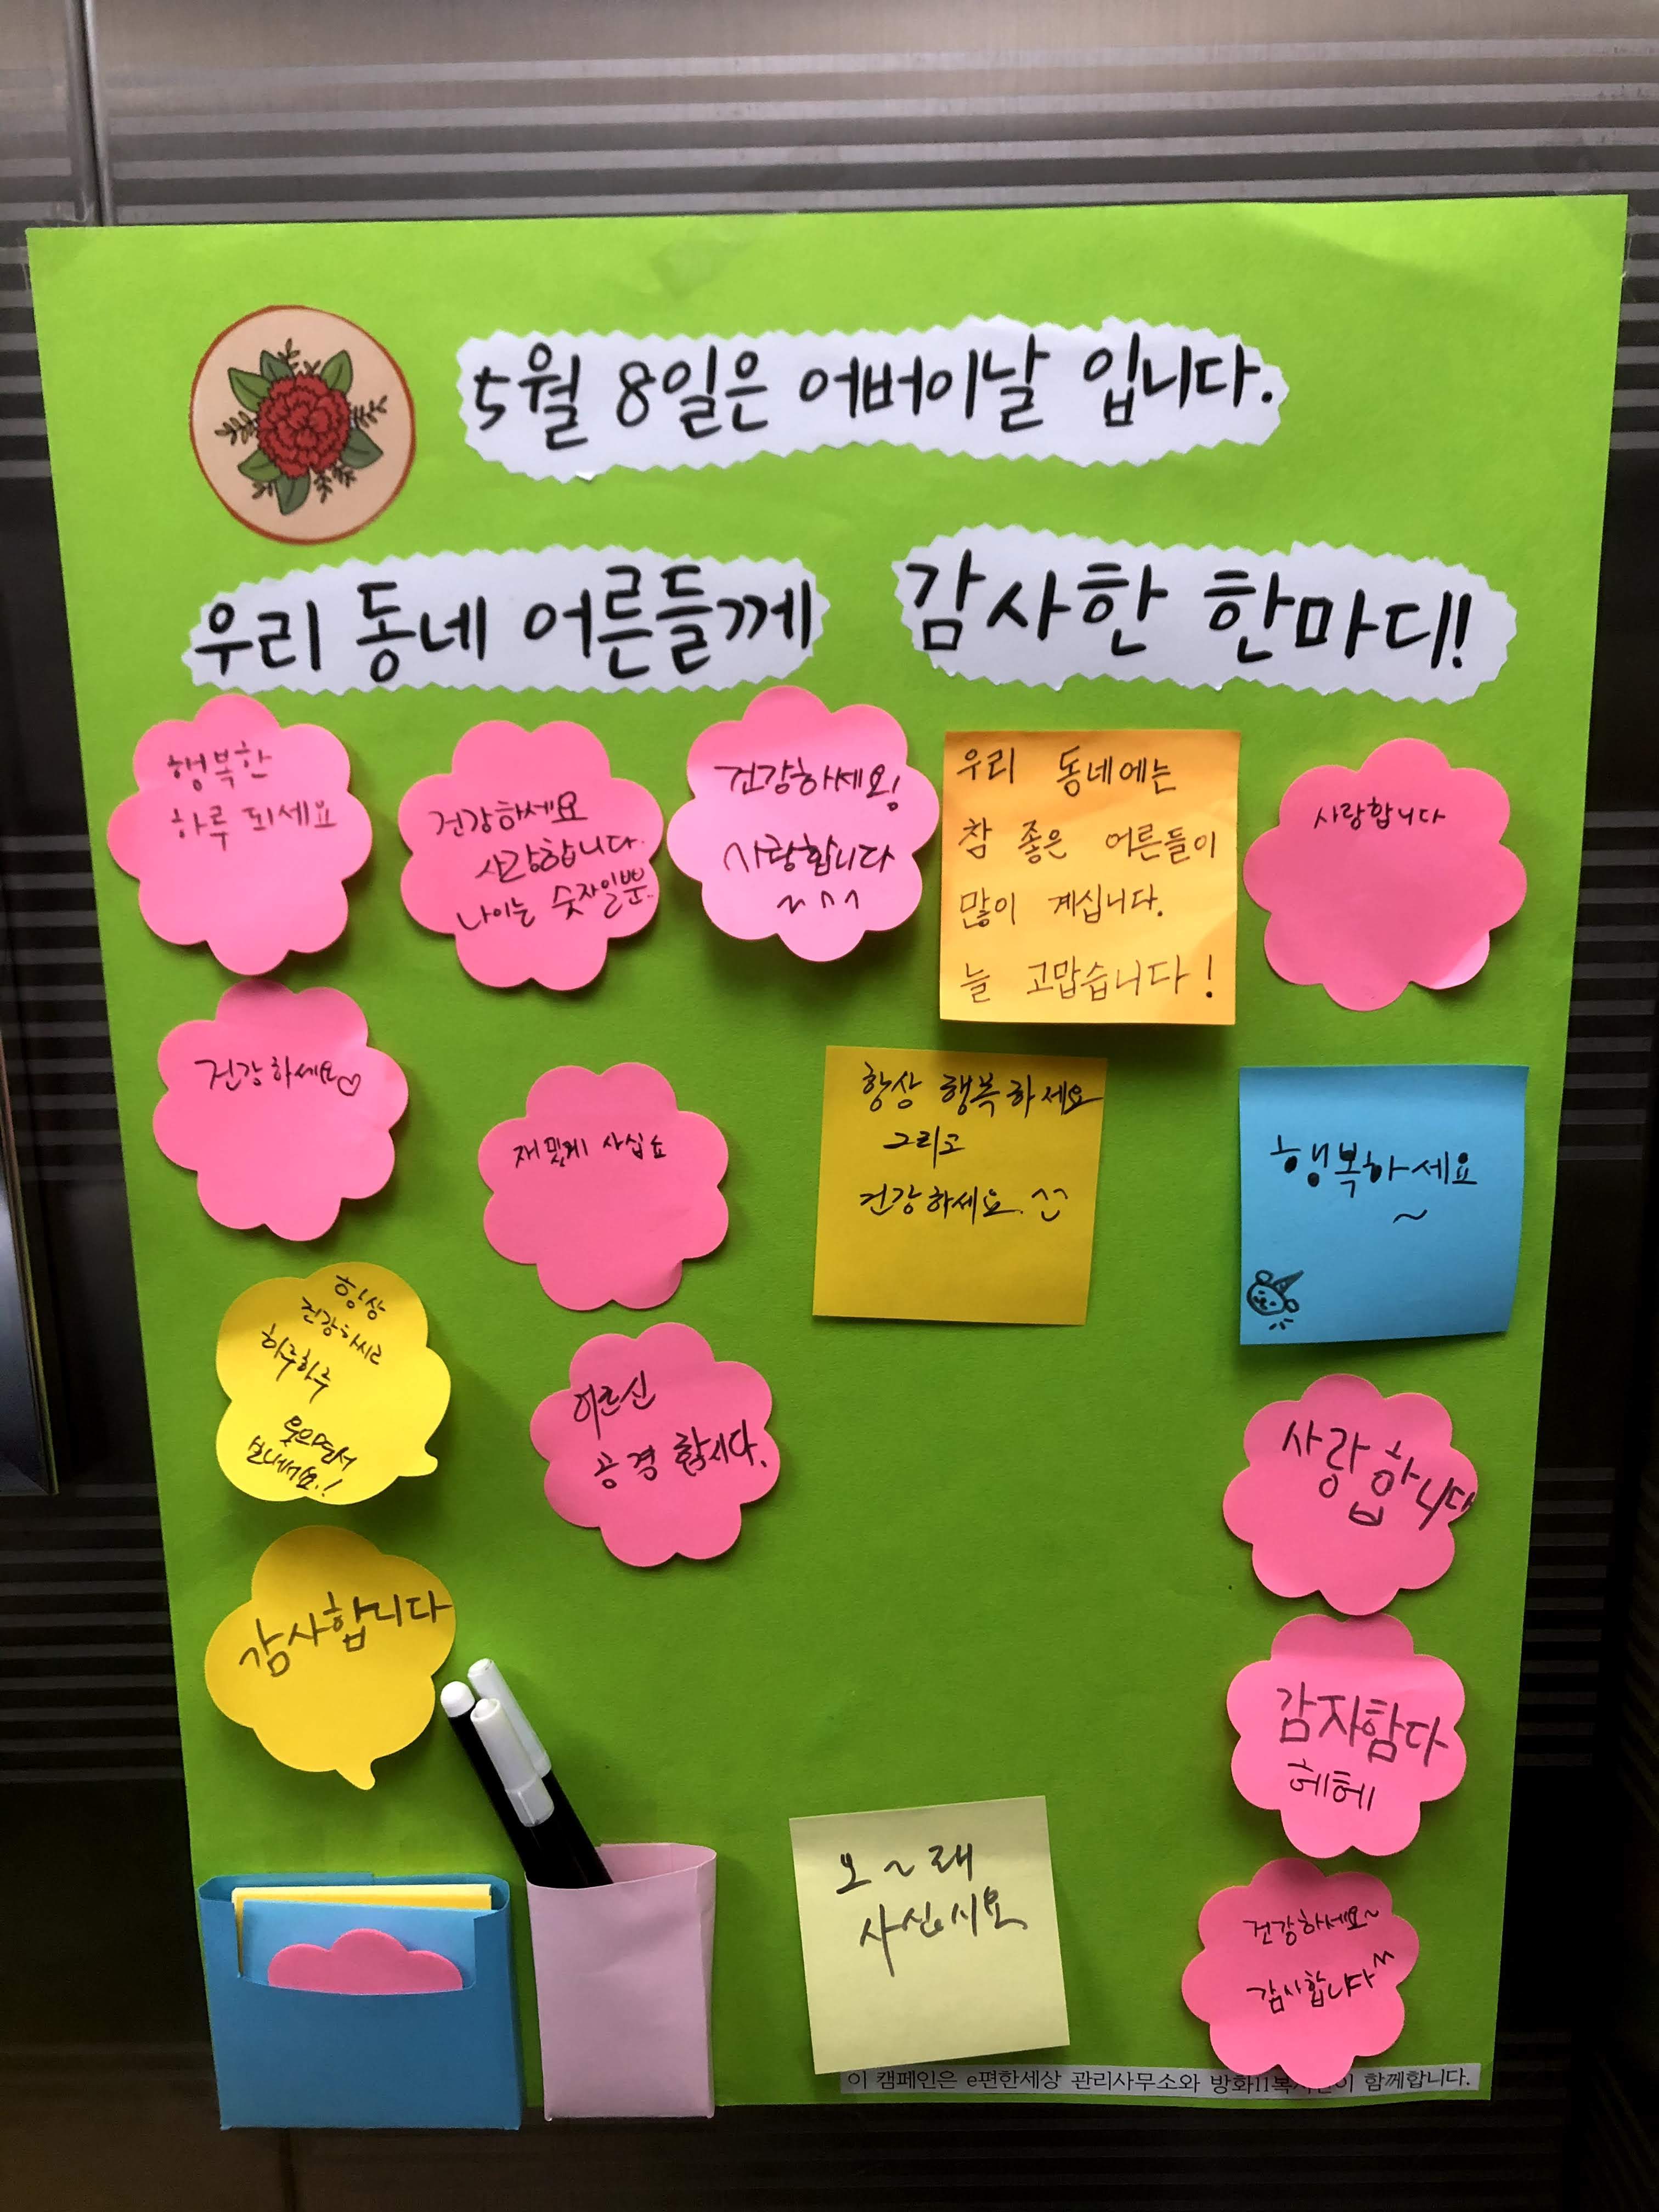 5월 8일은 어버이날 입니다.
우리 동네 어른들께 감사한 한마디!
행복한
하루 되세요
건강하세요
사랑합니다.
나이는 숫자일뿐.
건강하세요!
사랑합니다
~^^
우리 동네에는
참 좋은 어른들이
많이 계십니다.
늘 고맙습니다!
사랑합니다
건강하세요♡
재밌게 사십쇼
항상 행복하세요
그리고
건강하세요. ^^
행복하세요
~
항상
건강하시고
하루하루
웃으면서
보내세요.!
어르신
공경 합시다.
사랑합니다
감사합니다
감자함다
헤헤
오~래
사십시요
건강하세요~
감사합니다^^
이 캠페인은 e편한세상 관리사무소와 방화11복지관이 함께합니다.